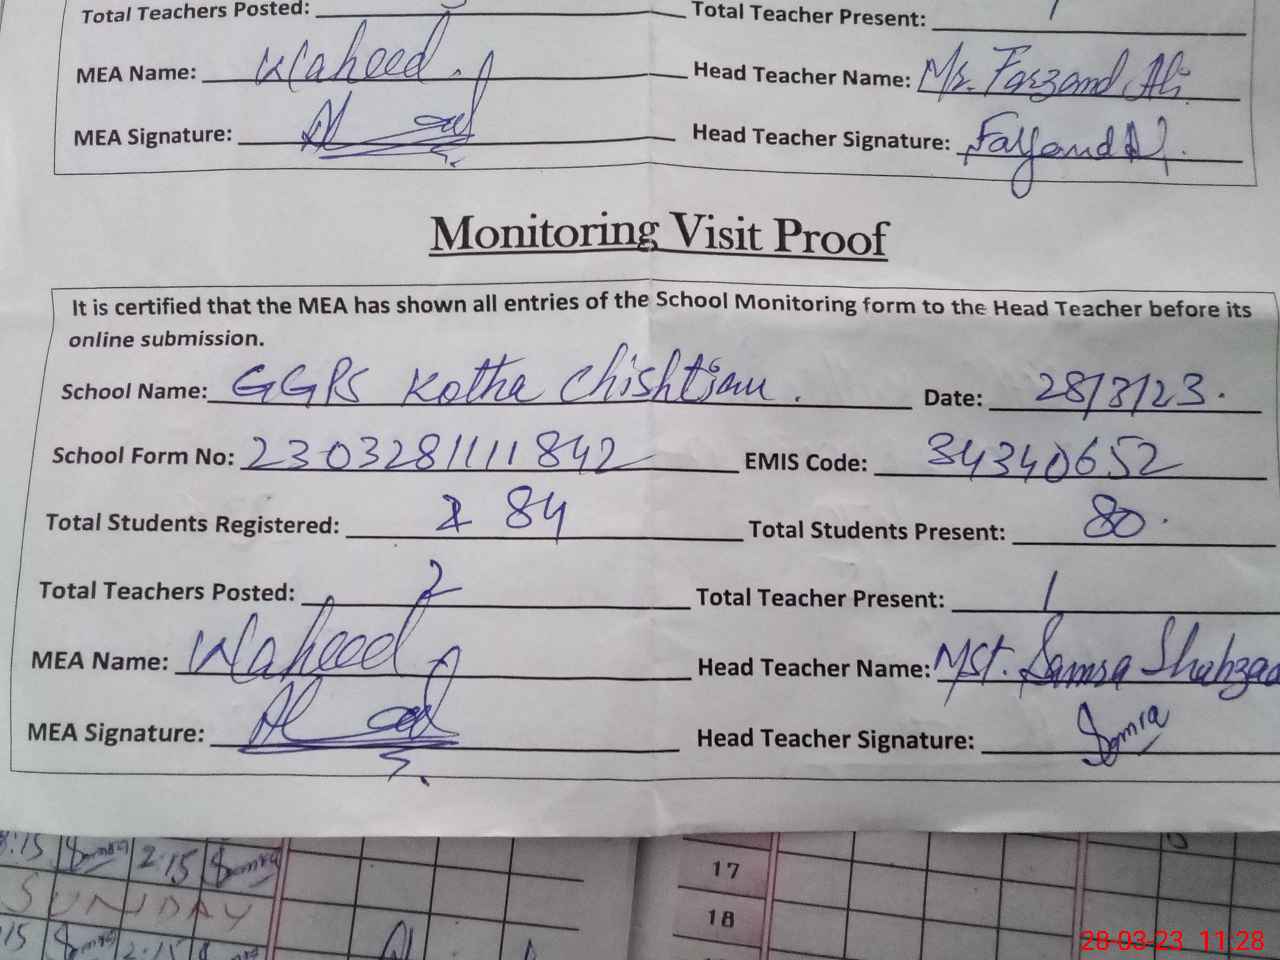 Total Teachers Posted: Total Teacher Present: 1
MEA Name: Waheed. Head Teacher Name: Mr. Farzand Ali
MEA Signature: Head Teacher Signature: Farzand Al.
Monitoring Visit Proof
It is certified that the MEA has shown all entries of the School Monitoring form to the Head Teacher before its
online submission.
School Name: GGPS Kotha Chishtian. Date: 28/3/23.
School Form No: 2303281111842 EMIS Code: 34340652
Total Students Registered: 84 Total Students Present: 80.
Total Teachers Posted: 2 Total Teacher Present: 1
MEA Name: Waheed Head Teacher Name: Mst. Samra Shahzad
MEA Signature: Head Teacher Signature: Samra
:15 Samra 2:15 Samra 17
SUNDAY
15 Samra 2:15 18
28-03-23 11:28